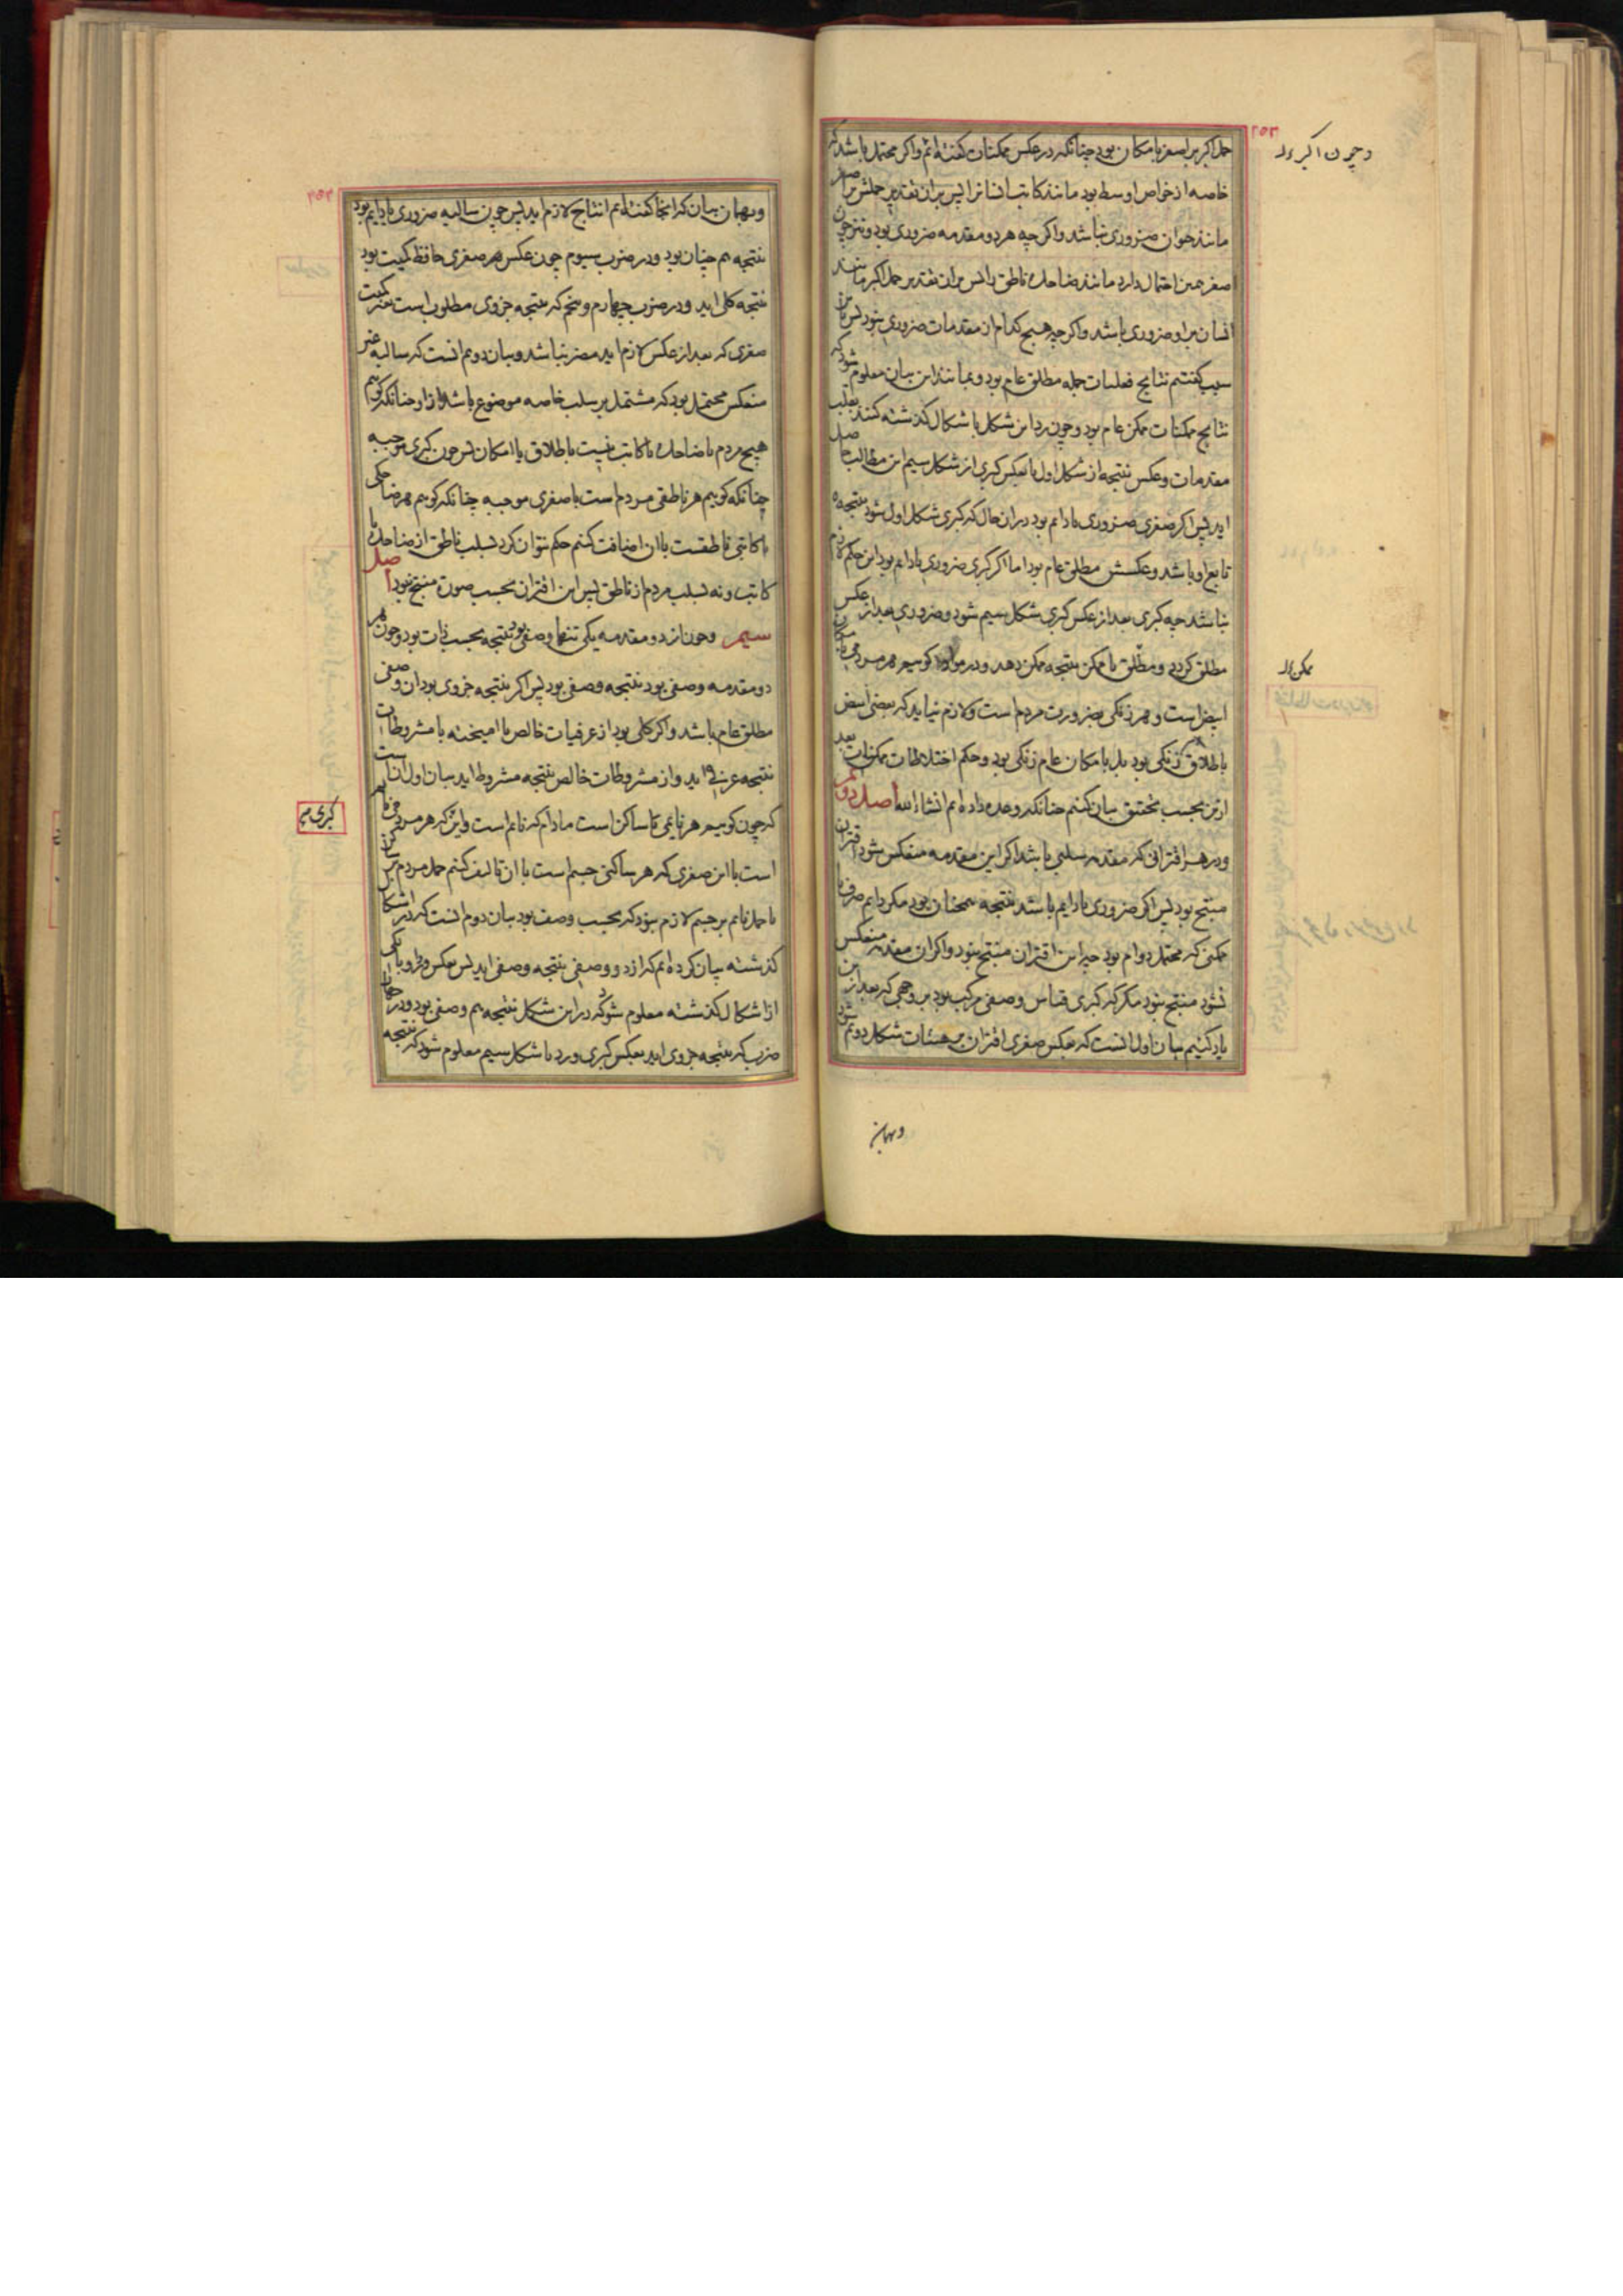 حمل اکبر بر اصغر بامکان بود چنانکه در عکس ممکنات گفته‌ایم واکر محتمل باشد که
خاصه از خواص اوسط بود مانند کاتب انسانرا پس بران تقدیر حملش بر اصغر
مانند حیوان ضروری نباشد واکر چه هر دو مقدمه ضروری بود و نیز چون
اصغر همین احتمال دارد مانند ضاحک ناطق را پس بران تقدیر حمل اکبر مانند
انسان بر او ضروری باشد واکر چه هیچ کدام از مقدمات ضروری نبود پس باین
سبب کفتیم نتایج فعلیات جمله مطلق عام بود و بمانند این بیان معلوم شود که
نتایج ممکنات ممکن عام بود و چون رد این شکل باشکال کذشته کنند بقلب
مقدمات وعکس نتیجه از شکل اول یا بعکس کبری از شکل سیم این مطالب حاصل
اید پس اکر صغری ضروری یا دایم بود دران حال که کبری شکل اول شود نتیجه
تابع او باشد وعکسش مطلق عام بود اما اکر کبری ضروری یا دایم بود این حکم لازم
نباشد چه کبری بعد از عکس کبری شکل سیم شود و ضروری بعد از عکس
مطلق کردد و مطلق با ممکن نتیجه ممکن دهد ودر مواد کوییم هر مردمی بامکان
ابیض است و هر زنکی بضرورت مردم است ولازم نیاید که بعضی ابیض
باطلاق زنکی بود بل بامکان عام زنکی بود وحکم اختلاطات ممکنات بعد
ازین بحسب تحقیق بیان کنیم چنانکه وعده داده‌ایم انشاالله اصل دویم
ودر هر اقترانی که مقدمه سلبی باشد اکر این مقدمه منعکس شود اقتران
منتج بود پس اکر ضروری یا دایم باشد نتیجه همچنان بود مکر دایم صرف با
ممکنی که محتمل دوام بود چه این اقتران منتج نبود واکر ان مقدمه منعکس
نشود منتج نبود مکر که کبری قیاس وصفی مرکب بود بر وجهی که بعد ازین
یاد کنیم بیان اول انست که بعکس صغری اقتران بر هیئات شکل دویم شود
وبهمان
وچون اکبر
ممکن
وبهمان بیان که انجا کفته‌ایم انتاج لازم اید پس چون سالبه ضروری یا دایم بود
نتیجه هم چنان بود ودر ضرب سیوم چون عکس هر صغری حافظ کمیت بود
نتیجه کلی اید ودر ضرب چهارم و پنجم که نتیجه جزوی مطلوب است تغیر کمیت
صغری که بعد از عکس لازم اید مضر نباشد وبیان دویم انست که سالبه غیر
منعکس محتمل بود که مشتمل بر سلب خاصه موضوع باشد ازو چنانکه کوییم
هیچ مردم یا ضاحک یا کاتب نیست باطلاق یا امکان پس چون کبری موجبه
چنانکه کوییم هر ناطقی مردم است یا صغری موجبه چنانکه کوییم هر ضاحکی
یا کاتبی ناطقست باان اضافت کنیم حکم نتوان کرد بسلب ناطق از ضاحک یا
کاتب و نه بسلب مردم از ناطق پس این اقتران بحسب صورة منتج نبود اصل
سیم وچون از دو مقدمه یکی تنها وصفی بود نتیجه بحسب ذات بود وچون هر
دو مقدمه وصفی بود نتیجه وصفی بود پس اکر نتیجه جزوی بود ان وصفی
مطلق عام باشد واکر کلی بود از عرفیات خالص یا امیخته با مشروطات
نتیجه عرفی اید واز مشروطات خالص نتیجه مشروط اید بیان اول انست
که چون کوییم هر نایمی ساکن است مادام که نایم است واین که هر مردمی نایم
است بااین صغری که هر ساکنی جسم است باان تالیف کنیم حمل مردم بر ساکن
یا حمل نایم بر جسم لازم نبود که بحسب وصف بود بیان دوم انست که در اشکال
کذشته بیان کرده‌ایم که از دو وصفی نتیجه وصفی اید پس بعکس وطرد با یکی
از اشکال کذشته معلوم شود که در این شکل نتیجه هم وصفی بود ودر چهار
ضرب که نتیجه جزوی اید بعکس کبری ورد با شکل سیم معلوم شود که نتیجه
کبری